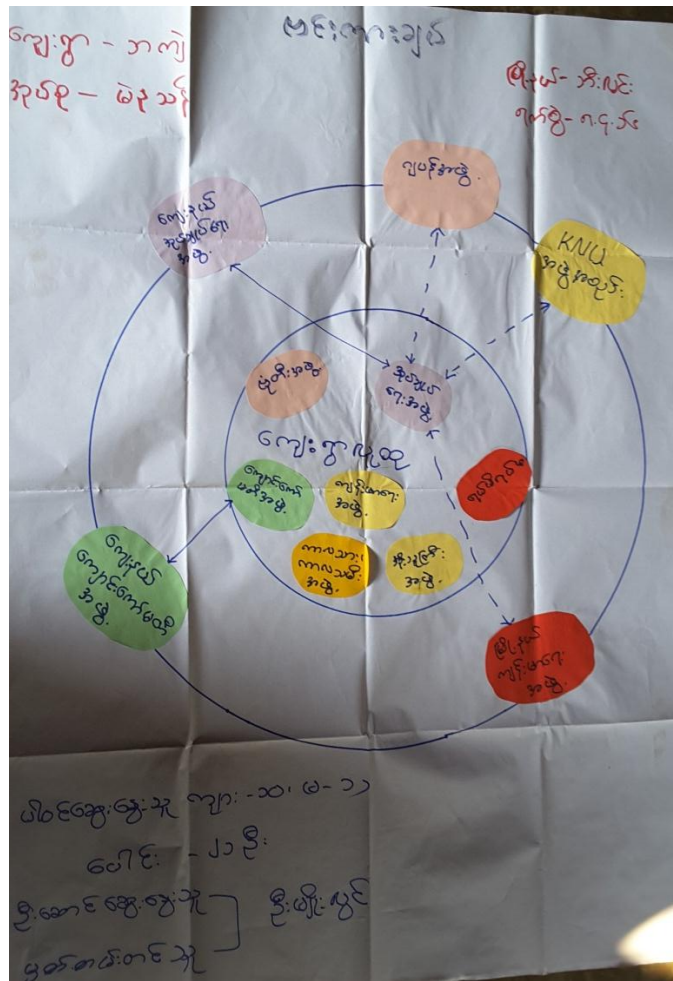 ဗင်းကားချပ်
ကျေးရွာ - ဘကပဲ
အုပ်စု -
မြို့နယ် - ဘီးလင်း
ဂျပန်အဖွဲ့.
ကျေးနယ်
အုပ်ချုပ်ရေး
အဖွဲ့.
KNU
အဖွဲ့အစည်း
အုပ်ချုပ်
ရေးအဖွဲ့.
ကျေးရွာလူထု
ကျောင်းကော်
မတီအဖွဲ့.
ကျန်းမာရေး
အဖွဲ့.
ကာလသား၊
ကာလသမီး
အဖွဲ့.
အဖွဲ့.
ကျေးနယ်
ကျောင်းကော်မတီ
အဖွဲ့.
မြို့နယ်
ကျန်းမာရေး
အဖွဲ့.
ပါဝင်ဆွေးနွေးသူ ကျား -၁၀၊ မ- ၁၁
ပေါင်း - ၂၁ ဦး
ဦးဆောင်ဆွေးနွေးသူ
မှတ်တမ်းတင်သူ
ဦးမျိုးလွင်